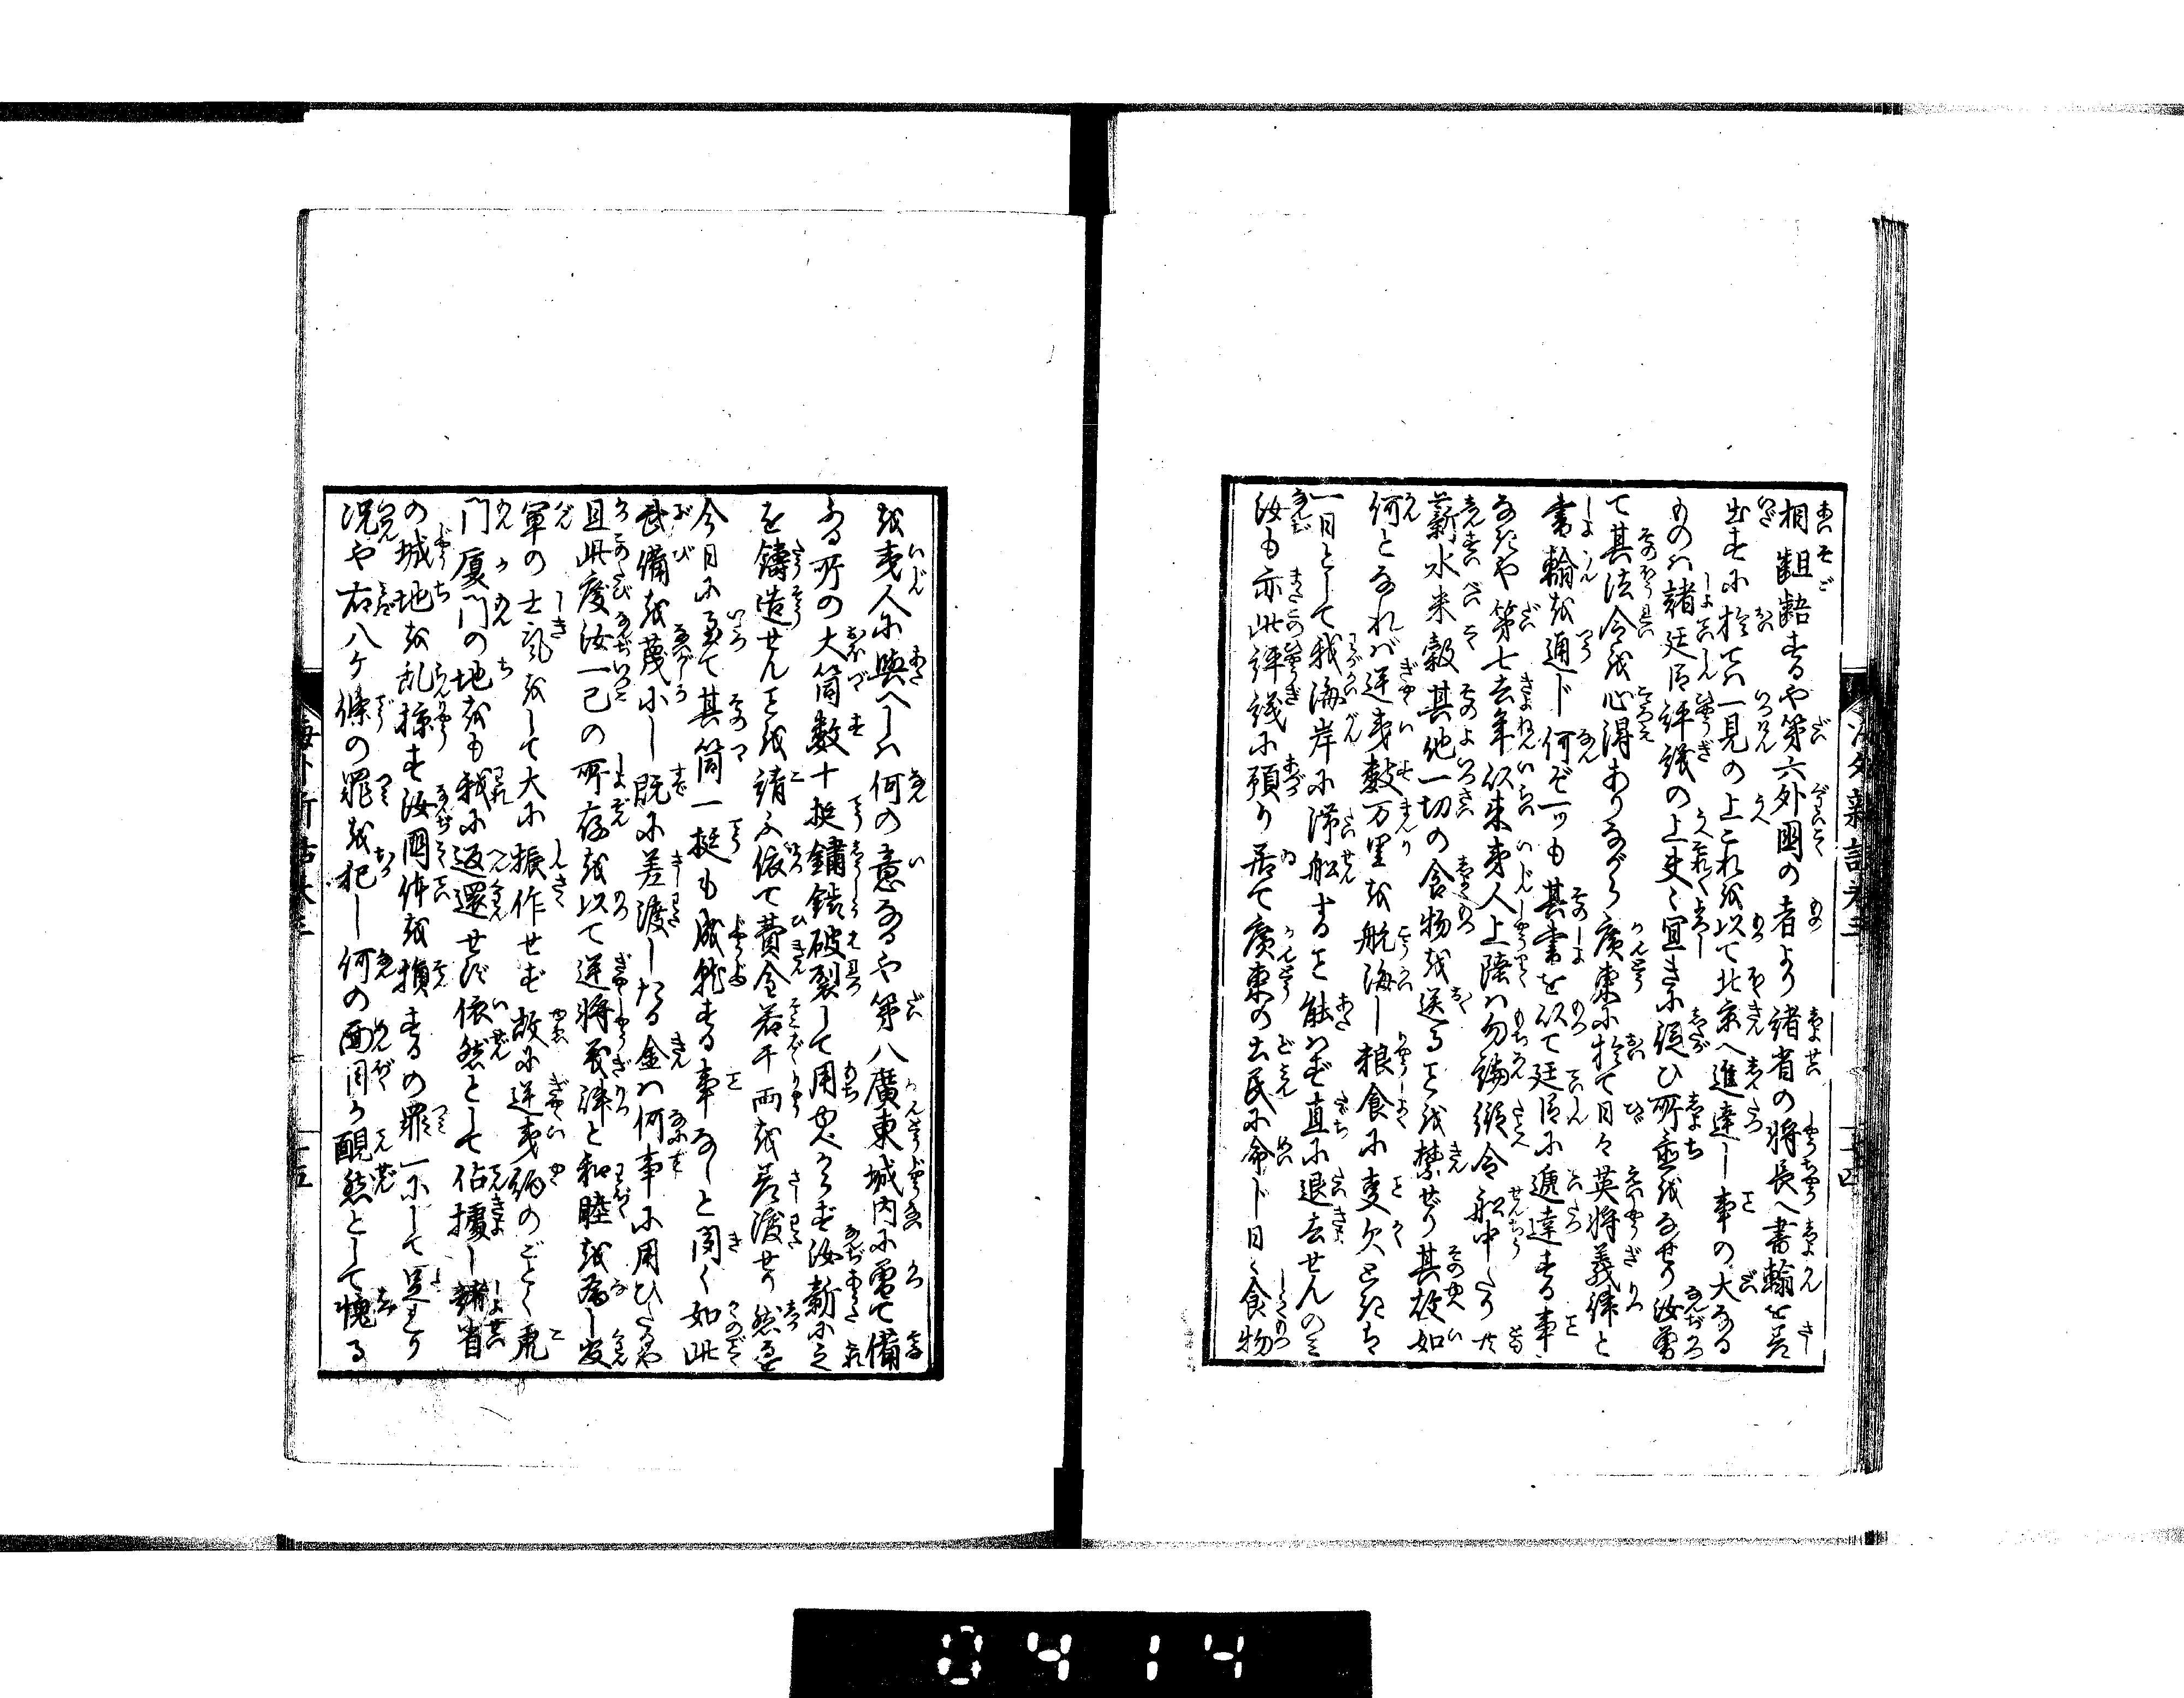 相齟齬するや第六外國の者より諸省の将長へ書翰を差
出すに於ては一見の上これを以て北京へ進達し事の大なる
ものは諸廷臣評議の上史〻宜きに隨ひ所置をなせり汝曽
て其法令を心得ありながら廣東に於て日々英将義律と
書翰を通じ何ぞ一ツも其書を以て廷臣に逓達する事
なきや第七去年以来夷人上陸は勿論縦令船中たり共
薪水米穀其他一切の食物を送るを禁せり其故如
何となれば逆夷數万里を航海し粮食に支欠ときは
一日として我海岸に滞船すると能はず直に退去せんのミ
汝も亦此評議に預り居て廣東の土民に命ト日〻食物
を夷人に與へしは何の意なるや第八廣東城内に曽て備
ふる所の大筒數十挺鏽錆破裂して用へからず汝新に之
を鑄造せんを請ふ依て費金若干両を差渡せり然る
今日に至て其筒一挺も成就する事なしと聞く如此
武備を蔑にし既に差渡したる金は何事に用ひたるや
且此度汝一己の所存を以て逆将義律と和睦を為し官
軍の士氣をして大に振作せず故に逆夷約のごとく虎
門厦門の地をも我に返還せず依然として佔據し諸省
の城地を乱掠す汝國体を損するの罪一にして足らず
况や右八ケ條の罪を犯し何の面目か靦然として愧る
海外新話巻三
十四
海外新話巻三
十五
0414